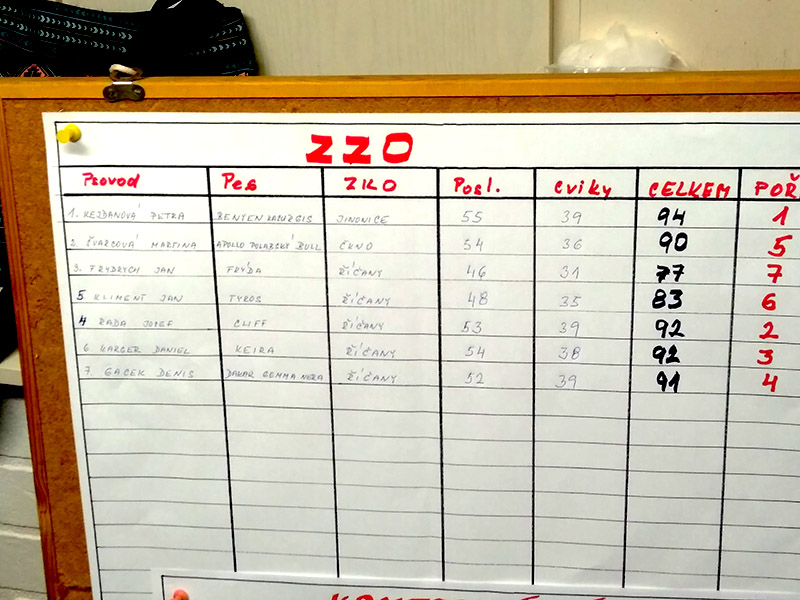 ZZO
Psovod Pes ZKO Posl. Cviky CELKEM POŘ
1. KEJDANOVÁ PETRA BENTEN KACURGIS JINONICE 55 39 94 1
2. ŠVARCOVÁ MARTINA APOLLO POLABSKÝ BULL ČKNO 54 36 90 5
3. FRYDRYCH JAN FRÝDA ŘÍČANY 46 31 77 7
5 KLIMENT JAN TYROS ŘÍČANY 48 35 83 6
4 RADA JOSEF CLIFF ŘÍČANY 53 39 92 2
6. KARGER DANIEL KEIRA ŘÍČANY 54 38 92 3
7. GACEK DENIS DAKAR GOMMA NERA ŘÍČANY 52 39 91 4